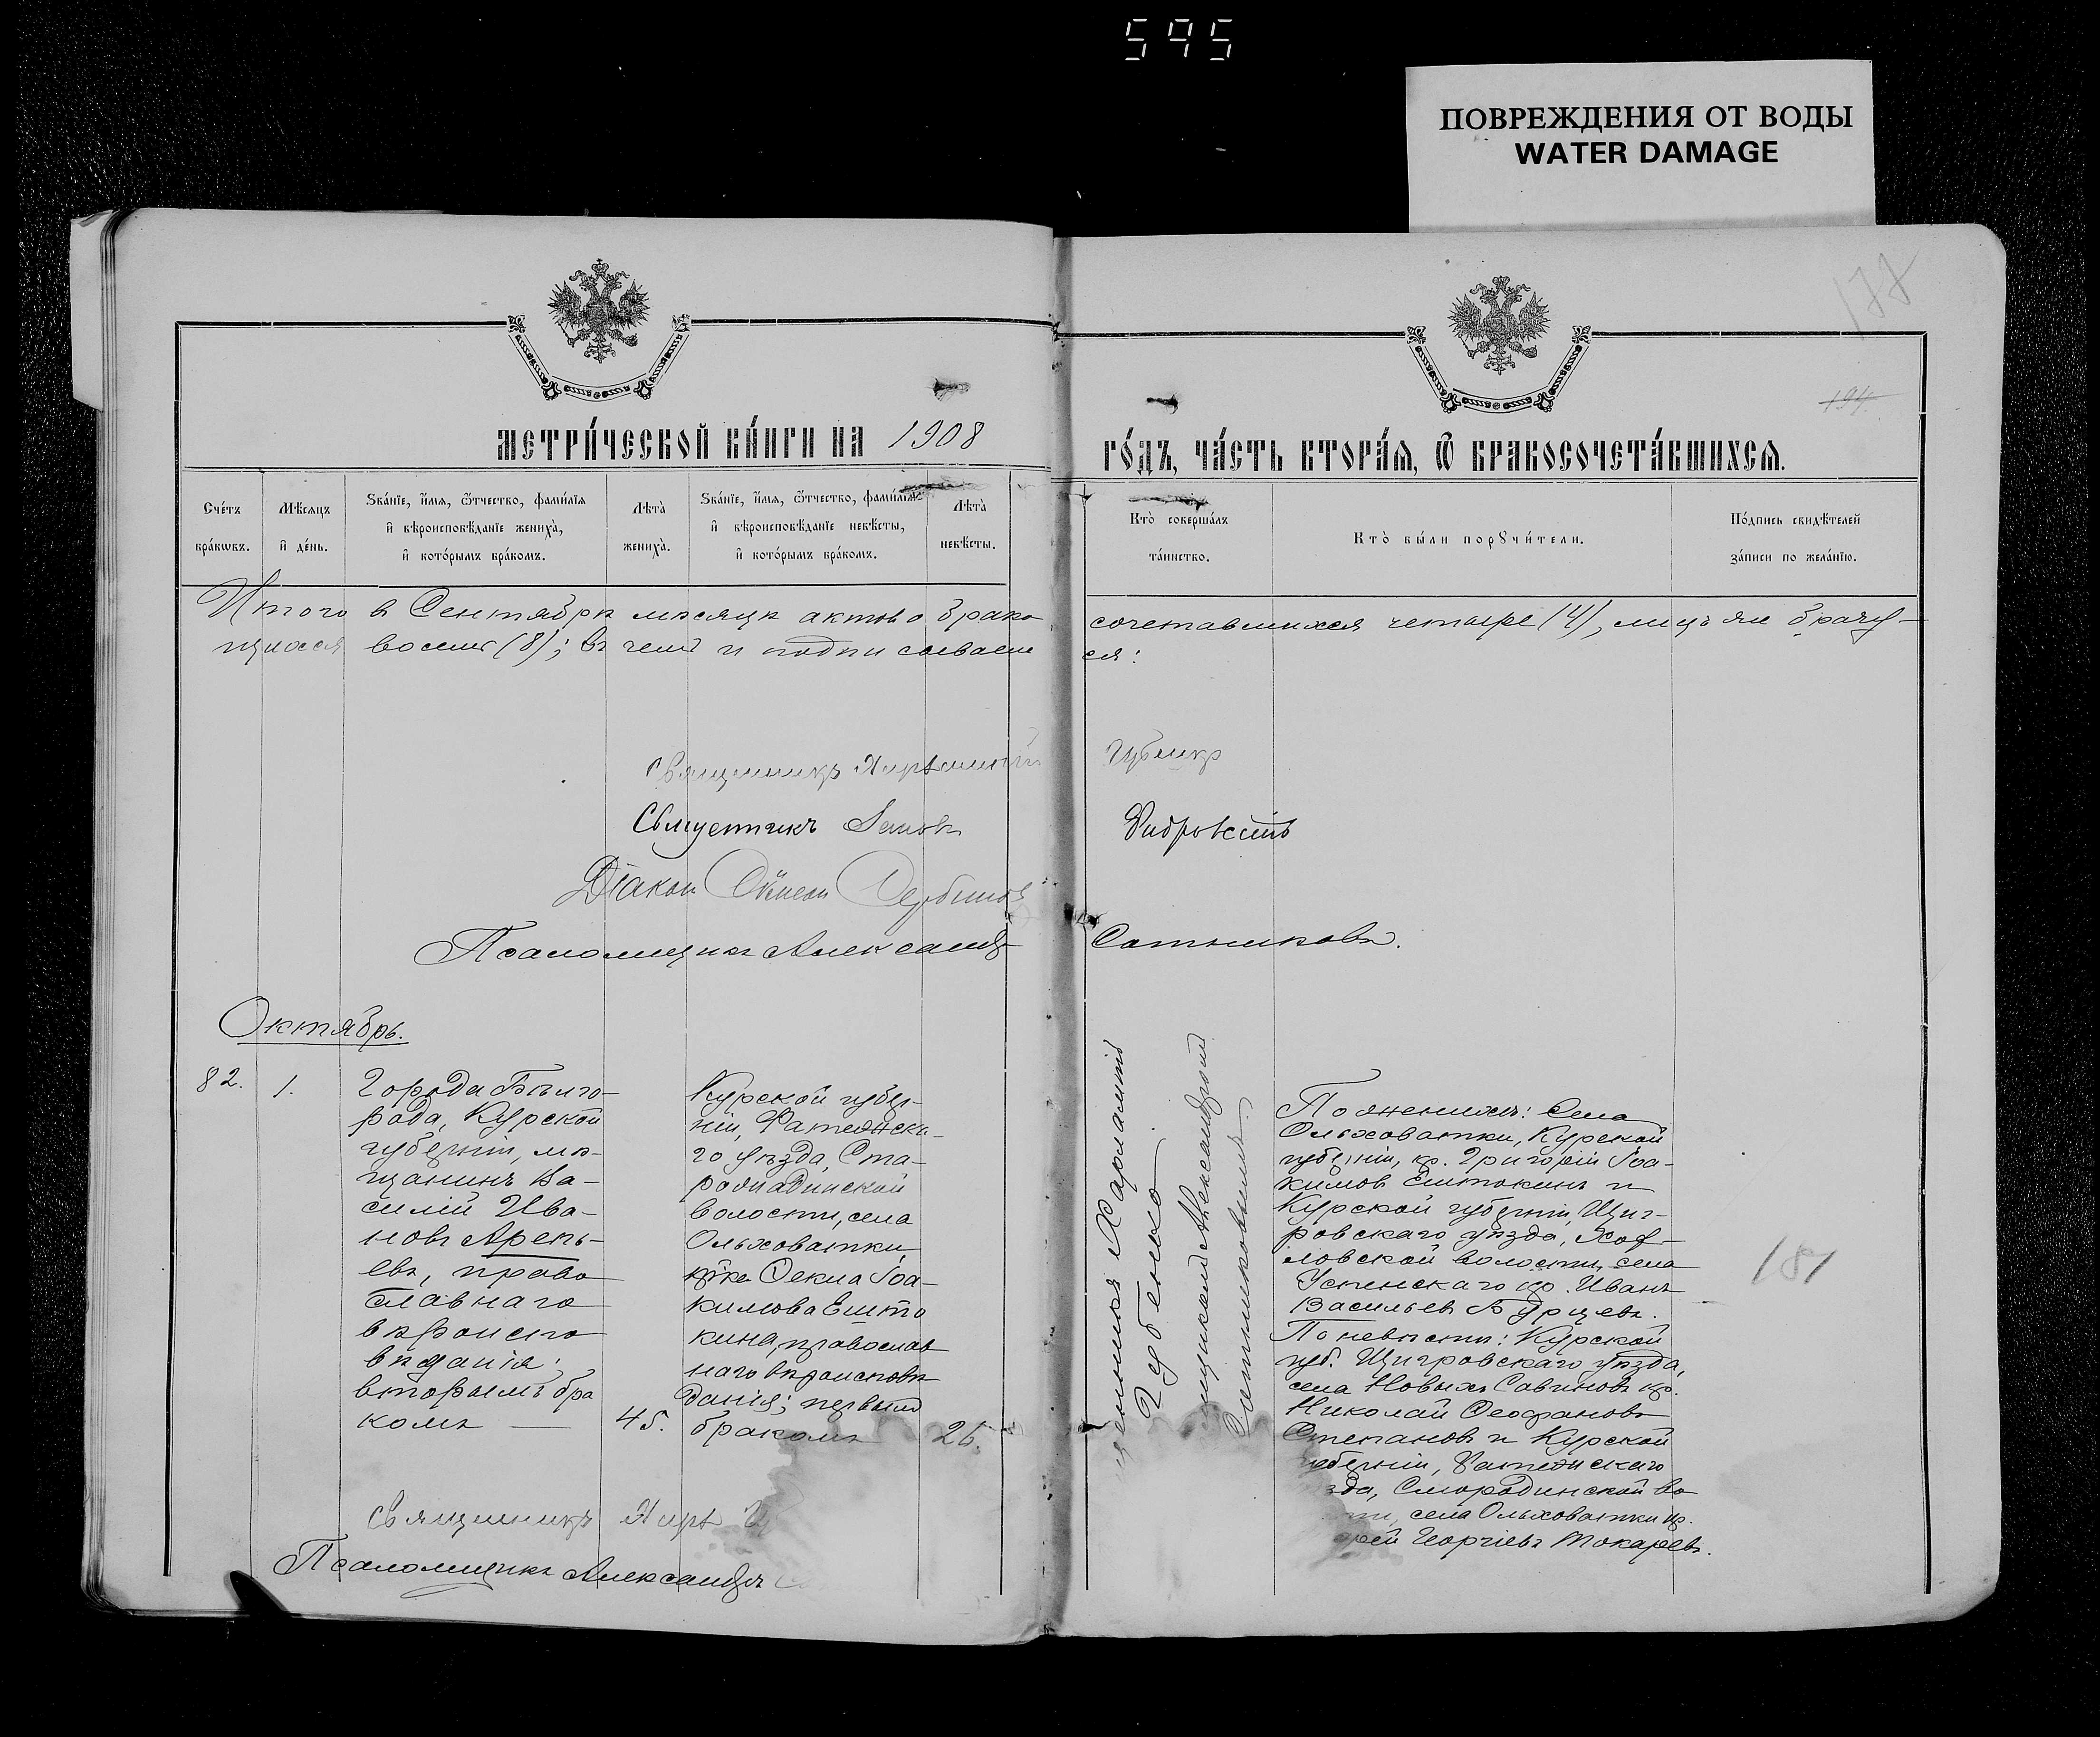 595
ПОВРЕЖДЕНИЯ ОТ ВОДЫ
WATER DAMAGE
177
194.
МЕТРИ́ЧЕСКОЙ КНИ́ГИ НА 1908
ГО́ДЪ, ЧА́СТЬ ВТОРА́Я, Ѿ БРАКОСОЧЕТА́ВШИХСЯ.
Сче́тъ бра́кѡвъ.
Мѣ́сяцъ и҆ де́нь.
Ѕва́нїе, и҆́мя, ѻ҆́тчество, фами́лїя
и҆ вѣроисповѣ́данїе жениха̀,
и҆ кото́рымъ бра́комъ.
Лѣ́та жениха̀.
Ѕва́нїе, и҆́мя, ѻ҆́тчество, фами́лїя
и҆ вѣроисповѣ́данїе невѣ́сты,
и҆ кото́рымъ бра́комъ.
Лѣ́та невѣ́сты.
Кто̀ соверша́лъ та́инство.
Кто̀ бы́ли порꙋчи́тели.
По́дпись свидѣ́телей за́писи по жела́нїю.
Итого в Сентябрѣ мѣсяцѣ актов о брако
сочетавшихся четыре (4), лицъ же брачу-
щихся восемь (8); въ чемъ и подписываем
ся:
Священникъ Харлампій Губенко
Священникъ
Діакон Симеон Сербинов
Псаломщикъ Александръ Сотниковъ.
Октябрь.
82.
1.
Города Бѣлго-
рода, Курской
губерніи, мѣ-
щанинъ Ва-
силій Ива-
новъ Арепь-
евъ, право
славнаго
вѣроиспо
вѣданія;
вторымъ бра
комъ —
45.
Курской губер-
ніи, Фатежска-
го уѣзда, Ста-
волости, села
Ольховатки,
кр-ка Ѳекла Іоа-
кимова Ешто
кина, православ
наго вѣроисповѣ
данія; первым
бракомъ
26.
Священникъ Харл. Г
Псаломщикъ Александръ
щенникъ Харлампій
Губенко.
мщикъ Александръ
Сотниковъ.
По женихѣ: Села
Ольховатки, Курской
губерніи, кр. Григорій Іоа-
кимов Ештокинъ и
Курской губерніи, Щиг-
ровскаго уѣзда, Хох-
ловской волости, села
Успенскаго кр. Иванъ
Васильевъ Бурцевъ.
По невѣстѣ: Курской
губ. Щигровскаго уѣзда,
села Новыхъ Савиновъ кр.
Николай Ѳеофановъ
Степановъ и Курской
губерніи, Фатежскаго
зда, Смородинской во
ти, села Ольховатки кр.
рей Георгіевъ Токаревъ.
181